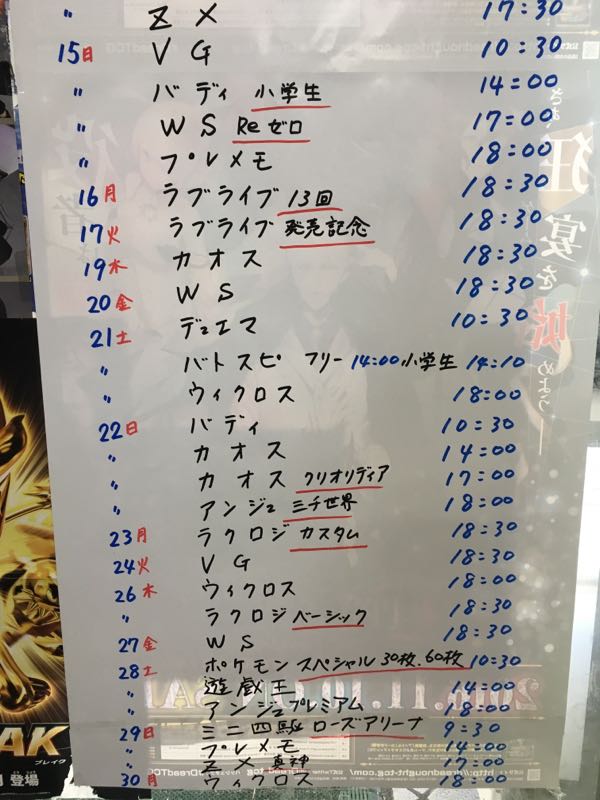 〃 ZX 17:30
15日 VG 10:30
〃 バディ 小学生 14:00
〃 WS Reゼロ 17:00
〃 プレメモ 18:00
16月 ラブライブ 13回 18:30
17火 ラブライブ 発売記念 18:30
19木 カオス 18:30
20金 WS 18:30
21土 デュエマ 10:30
〃 バトスピ フリー 14:00 小学生 14:10
〃 ウィクロス 18:00
22日 バディ 10:30
〃 カオス 14:00
〃 カオス クリオリディア 17:00
〃 アンジュ 三千世界 18:00
23月 ラクロジ カスタム 18:30
24火 VG 18:30
26木 ウィクロス 18:00
ラクロジ ベーシック 18:30
27金 WS 18:30
28土 ポケモン スペシャル 30枚.60枚 10:30
〃 遊戯王 14:00
〃 アンジュプレミアム 18:00
29日 ミニ四駆 ローズアリーナ 9:30
〃 プレメモ 14:00
〃 ZX 真神 17:00
30月 ウィクロス 18:00
狂宴を
めよう
AK
ブレイク
登場